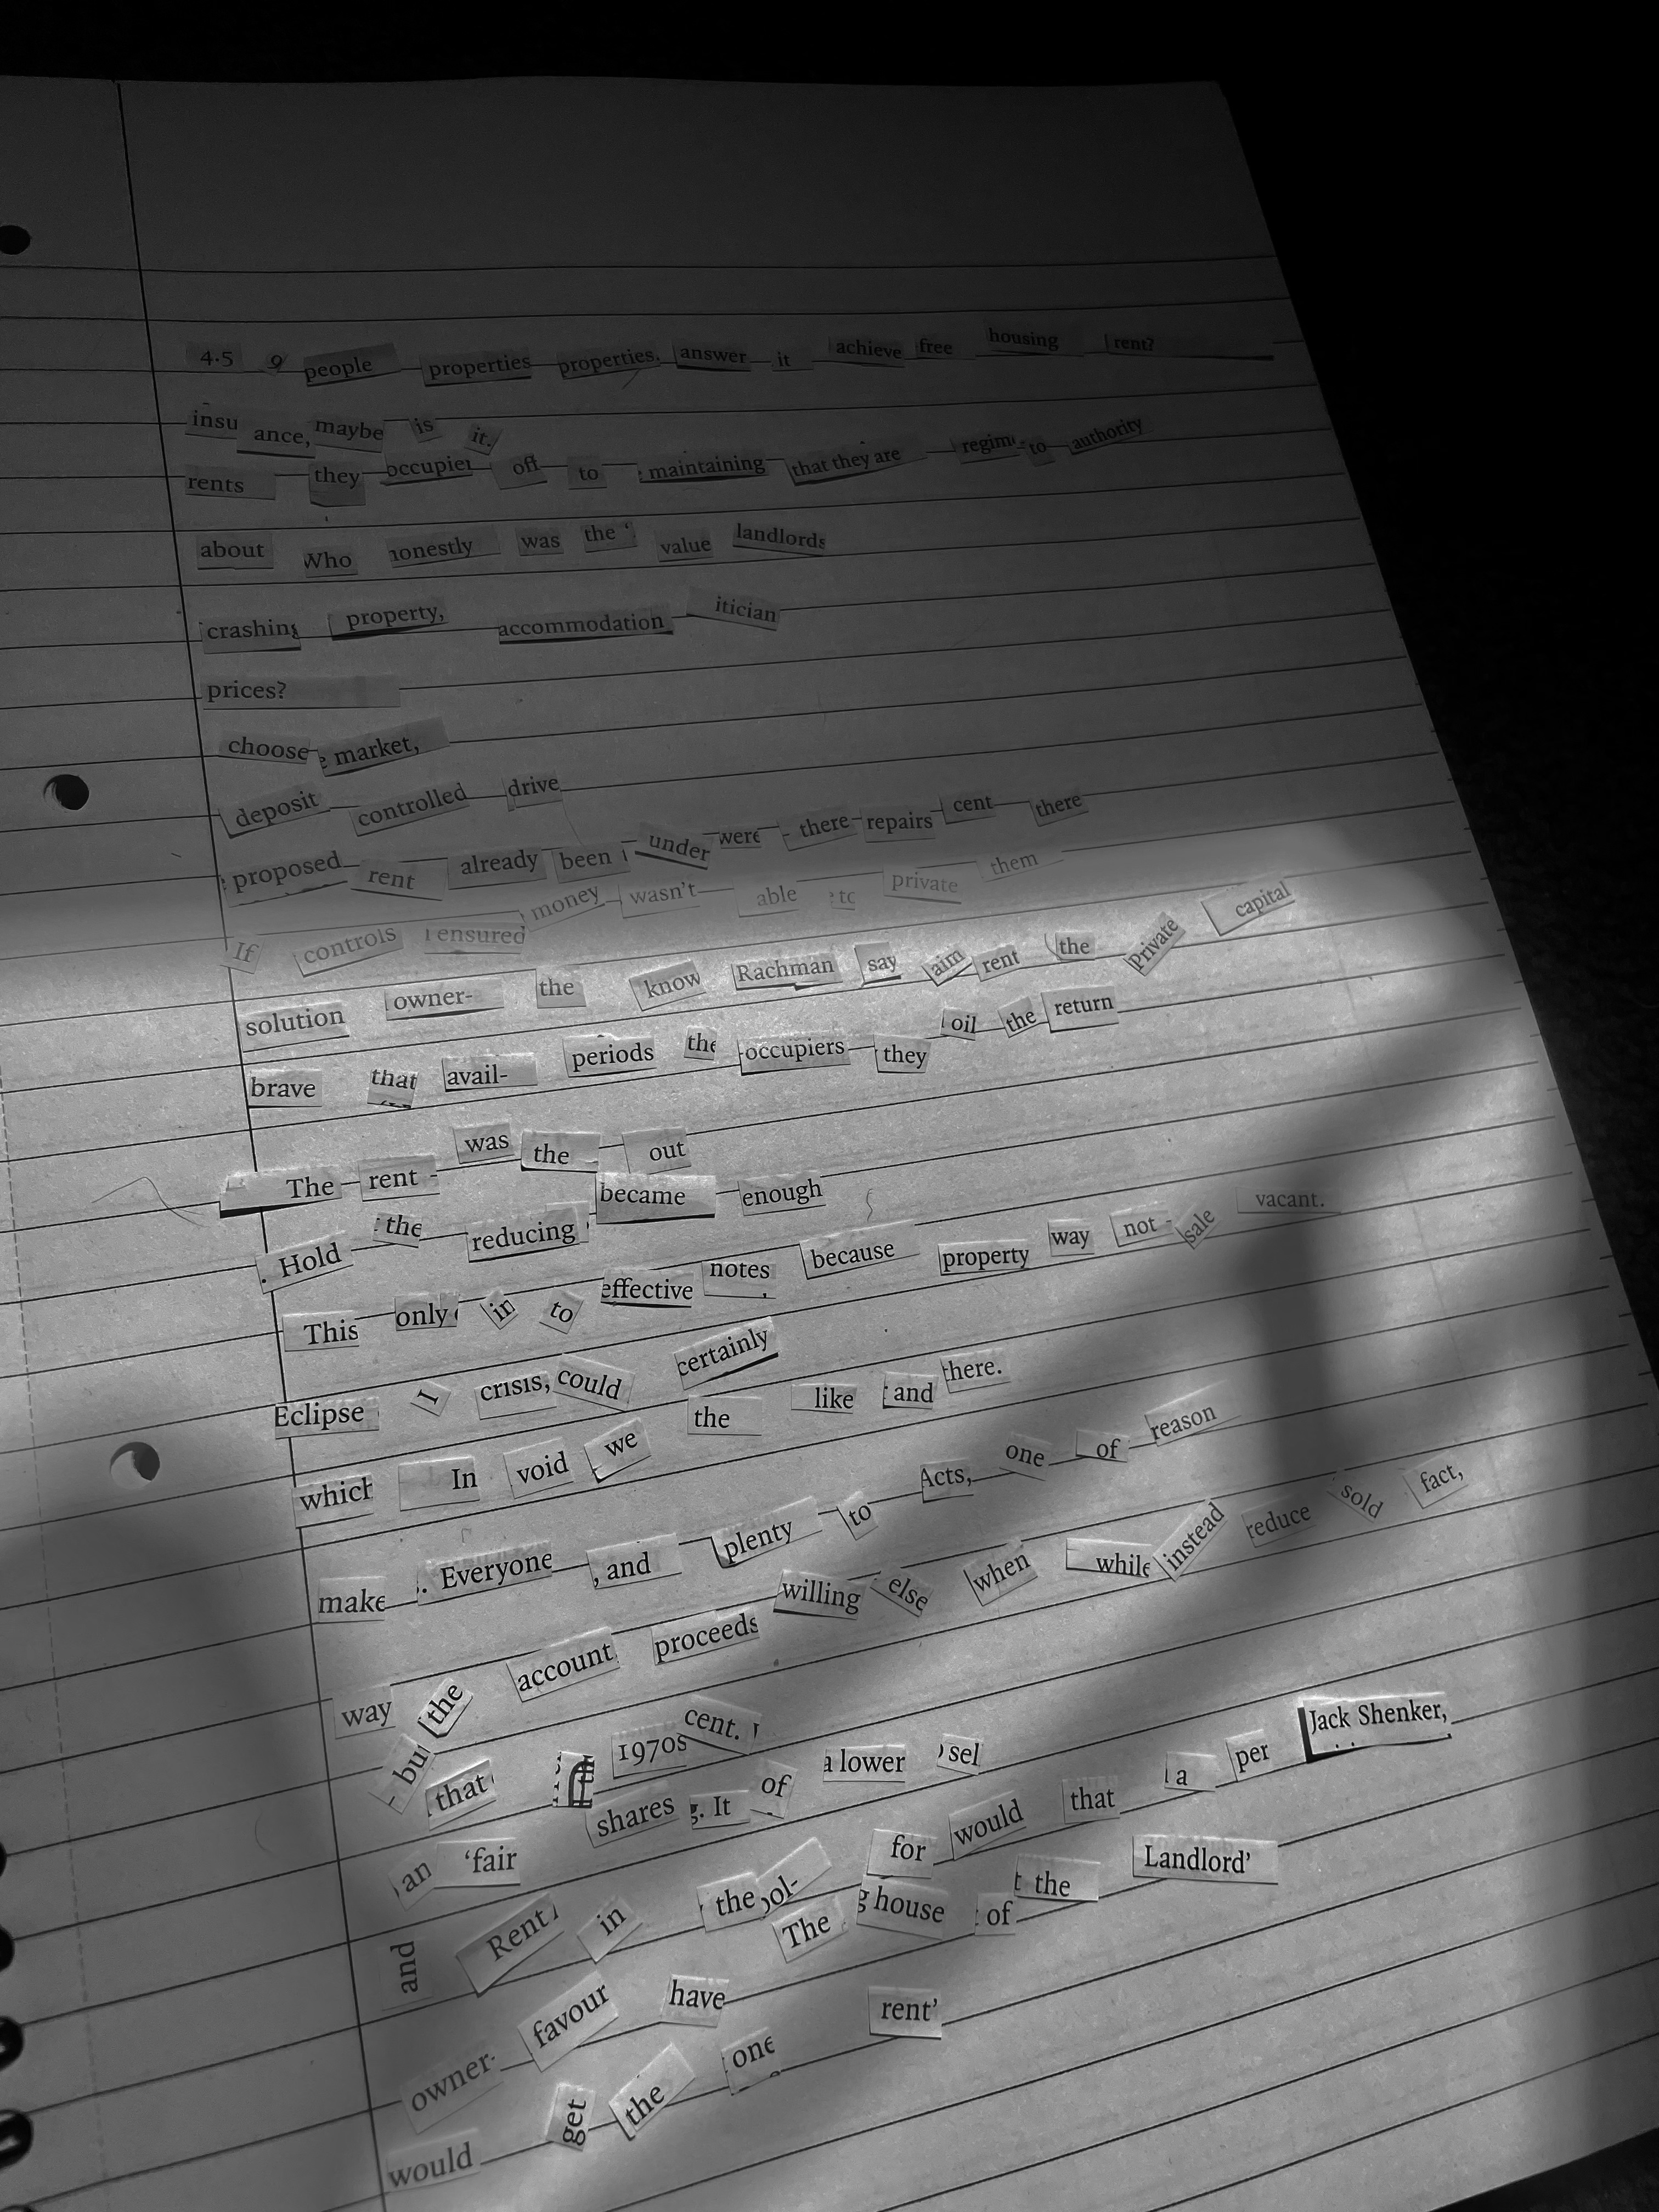 4.5 9 people properties properties. answer it achieve free housing rent?
insu ance, maybe is it.
rents they occupier off to maintaining that they are regim to authority
about Who honestly was the ‘ value landlords
crashing property, accommodation itician
prices?
choose e market,
deposit controlled drive
proposed rent already been under were there repairs cent there
If controls ensured money wasn’t able to private them
solution owner- the know Rachman say aim rent the Private capital
brave that avail- periods the occupiers they oil the return
The rent - was the out
. Hold the reducing became enough
This only in to effective notes because property way not - sale vacant.
Eclipse I crisis, could certainly
which In void we the like and there.
make . Everyone , and plenty to Acts, one of reason
way the account proceeds willing else when while instead reduce sold fact,
- bu that 1970s cent.
an ‘fair shares g. It of a lower sel
and Rent in the ol- for would that a per Jack Shenker,
owner- favour have The g house of t the Landlord’
would get the one rent’